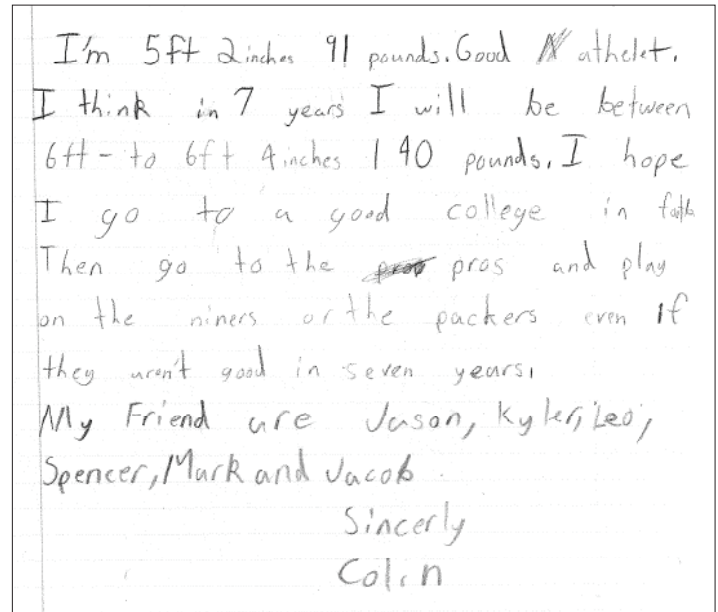 I'm 5ft 2inches 91 pounds. Good athelet.
I think in 7 years I will be between
6ft - to 6ft 4inches 190 pounds. I hope
I go to a good college in
Then go to the pros and play
on the niners or the packers even if
they aren't good in seven years,
My Friend are Jason, Kyler, Leo,
Spencer, Mark and Jacob.
Sincerly
Colin